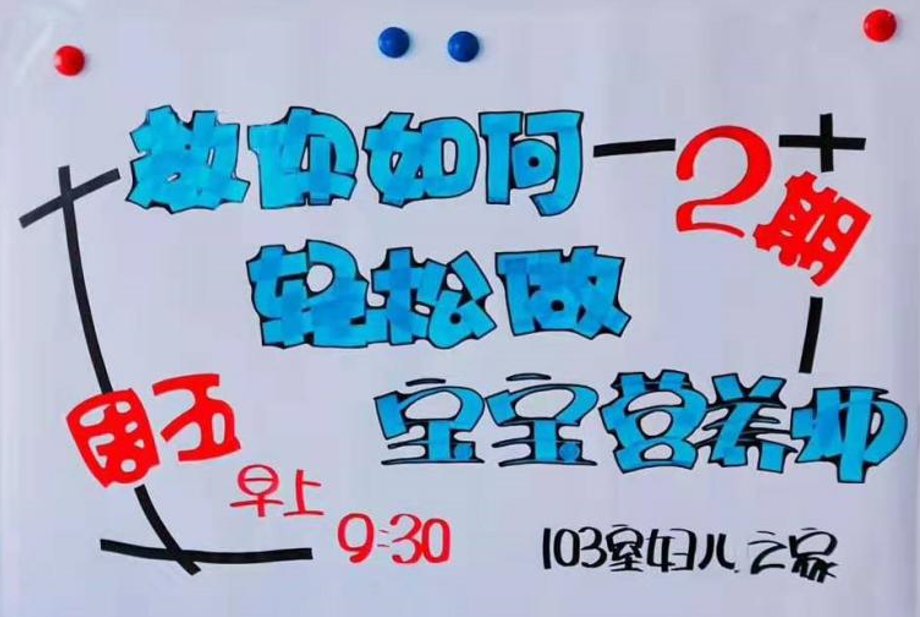 教你如何
2期
轻松做
宝宝营养师
周五
早上
9:30
103室妇儿之家